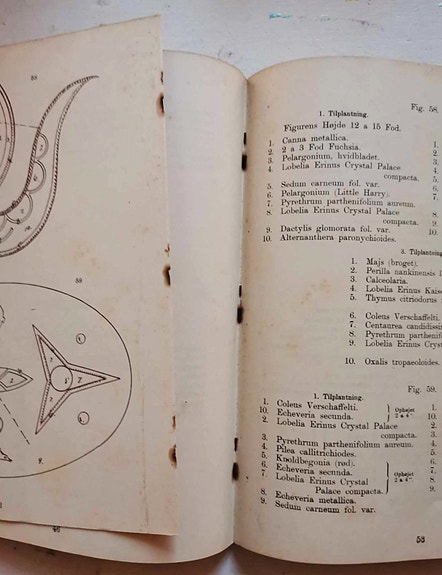 58
59
46
Fig. 58.
1. Tilplantning.
Figurens Højde 12 a 15 Fod.
1. Canna metallica.
2. 2 a 3 Fod Fuchsia.
3. Pelargonium, hvidbladet.
4. Lobelia Erinus Crystal Palace
compacta.
5. Sedum carneum fol. var.
6. Pelargonium (Little Harry).
7. Pyrethrum parthenifolium aureum.
8. Lobelia Erinus Crystal Palace
compacta.
9. Dactylis glomorata fol. var.
10. Alternanthera paronychioides.
1.
2.
3.
4.
5.
6.
7.
8.
9.
10.
3. Tilplantning
1. Majs (broget).
2. Perilla nankinensis
3. Calceolaria.
4. Lobelia Erinus
5. Thymus citriodorus
6. Coleus Verschaffelti.
7. Centaurea
8. Pyrethrum
9. Lobelia Erinus
10. Oxalis tropaeoloides.
Fig. 59.
1. Tilplantning.
1. Coleus Verschaffelti.
10. Echeveria secunda.
Ophøjet
2 a 4"
2. Lobelia Erinus Crystal Palace
compacta.
3. Pyrethrum parthenifolium aureum.
4. Pilea callitrichoides.
5. Knoldbegonia (rød).
6. Echeveria secunda.
7. Lobelia Erinus Crystal
Palace compacta.
Ophøjet
2 a 4"
8. Echeveria metallica.
9. Sedum carneum fol. var.
1.
10.
2.
3.
4.
5.
6.
7.
8.
9.
53